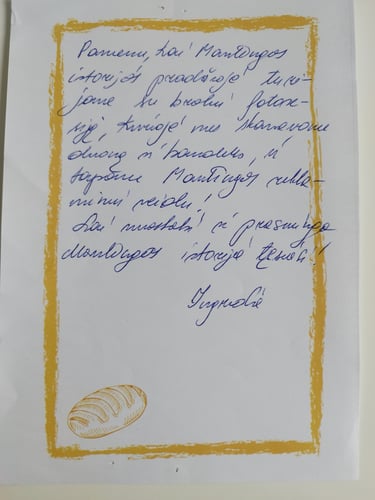 Pamenu, kai Mantingos
istorijos pradžioje turė-
jome su broliu fotose-
siją, kurioje me skanavome
duoną ir bandeles, ir
tapome Mantingos rekla-
miniu veidu!
Kai nuostabi ir prasminga
Mantingos istorija tęsiasi!